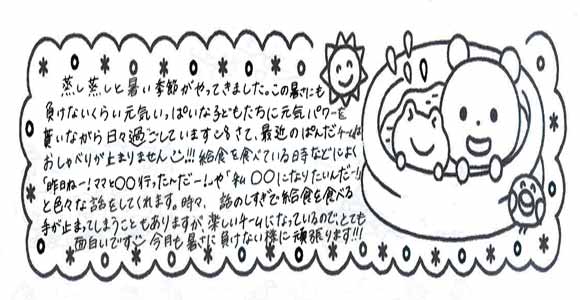 蒸し蒸しと暑い季節がやってきました。この暑さにも
負けないくらい元気いっぱいな子どもたちに元気パワーを
貰いながら日々過ごしています。さて、最近のぱんだチームは
おしゃべりが止まりません!!!給食を食べている時などによく
「昨日ねー!ママと〇〇行ったんだー!」や「私〇〇になりたいんだー!」
と色々な話をしてくれます。時々、話のしすぎで給食を食べる
手が止まってしまうこともありますが、楽しいチームになっているので、とても
面白いです。今月も暑さに負けない様に頑張ります!!!